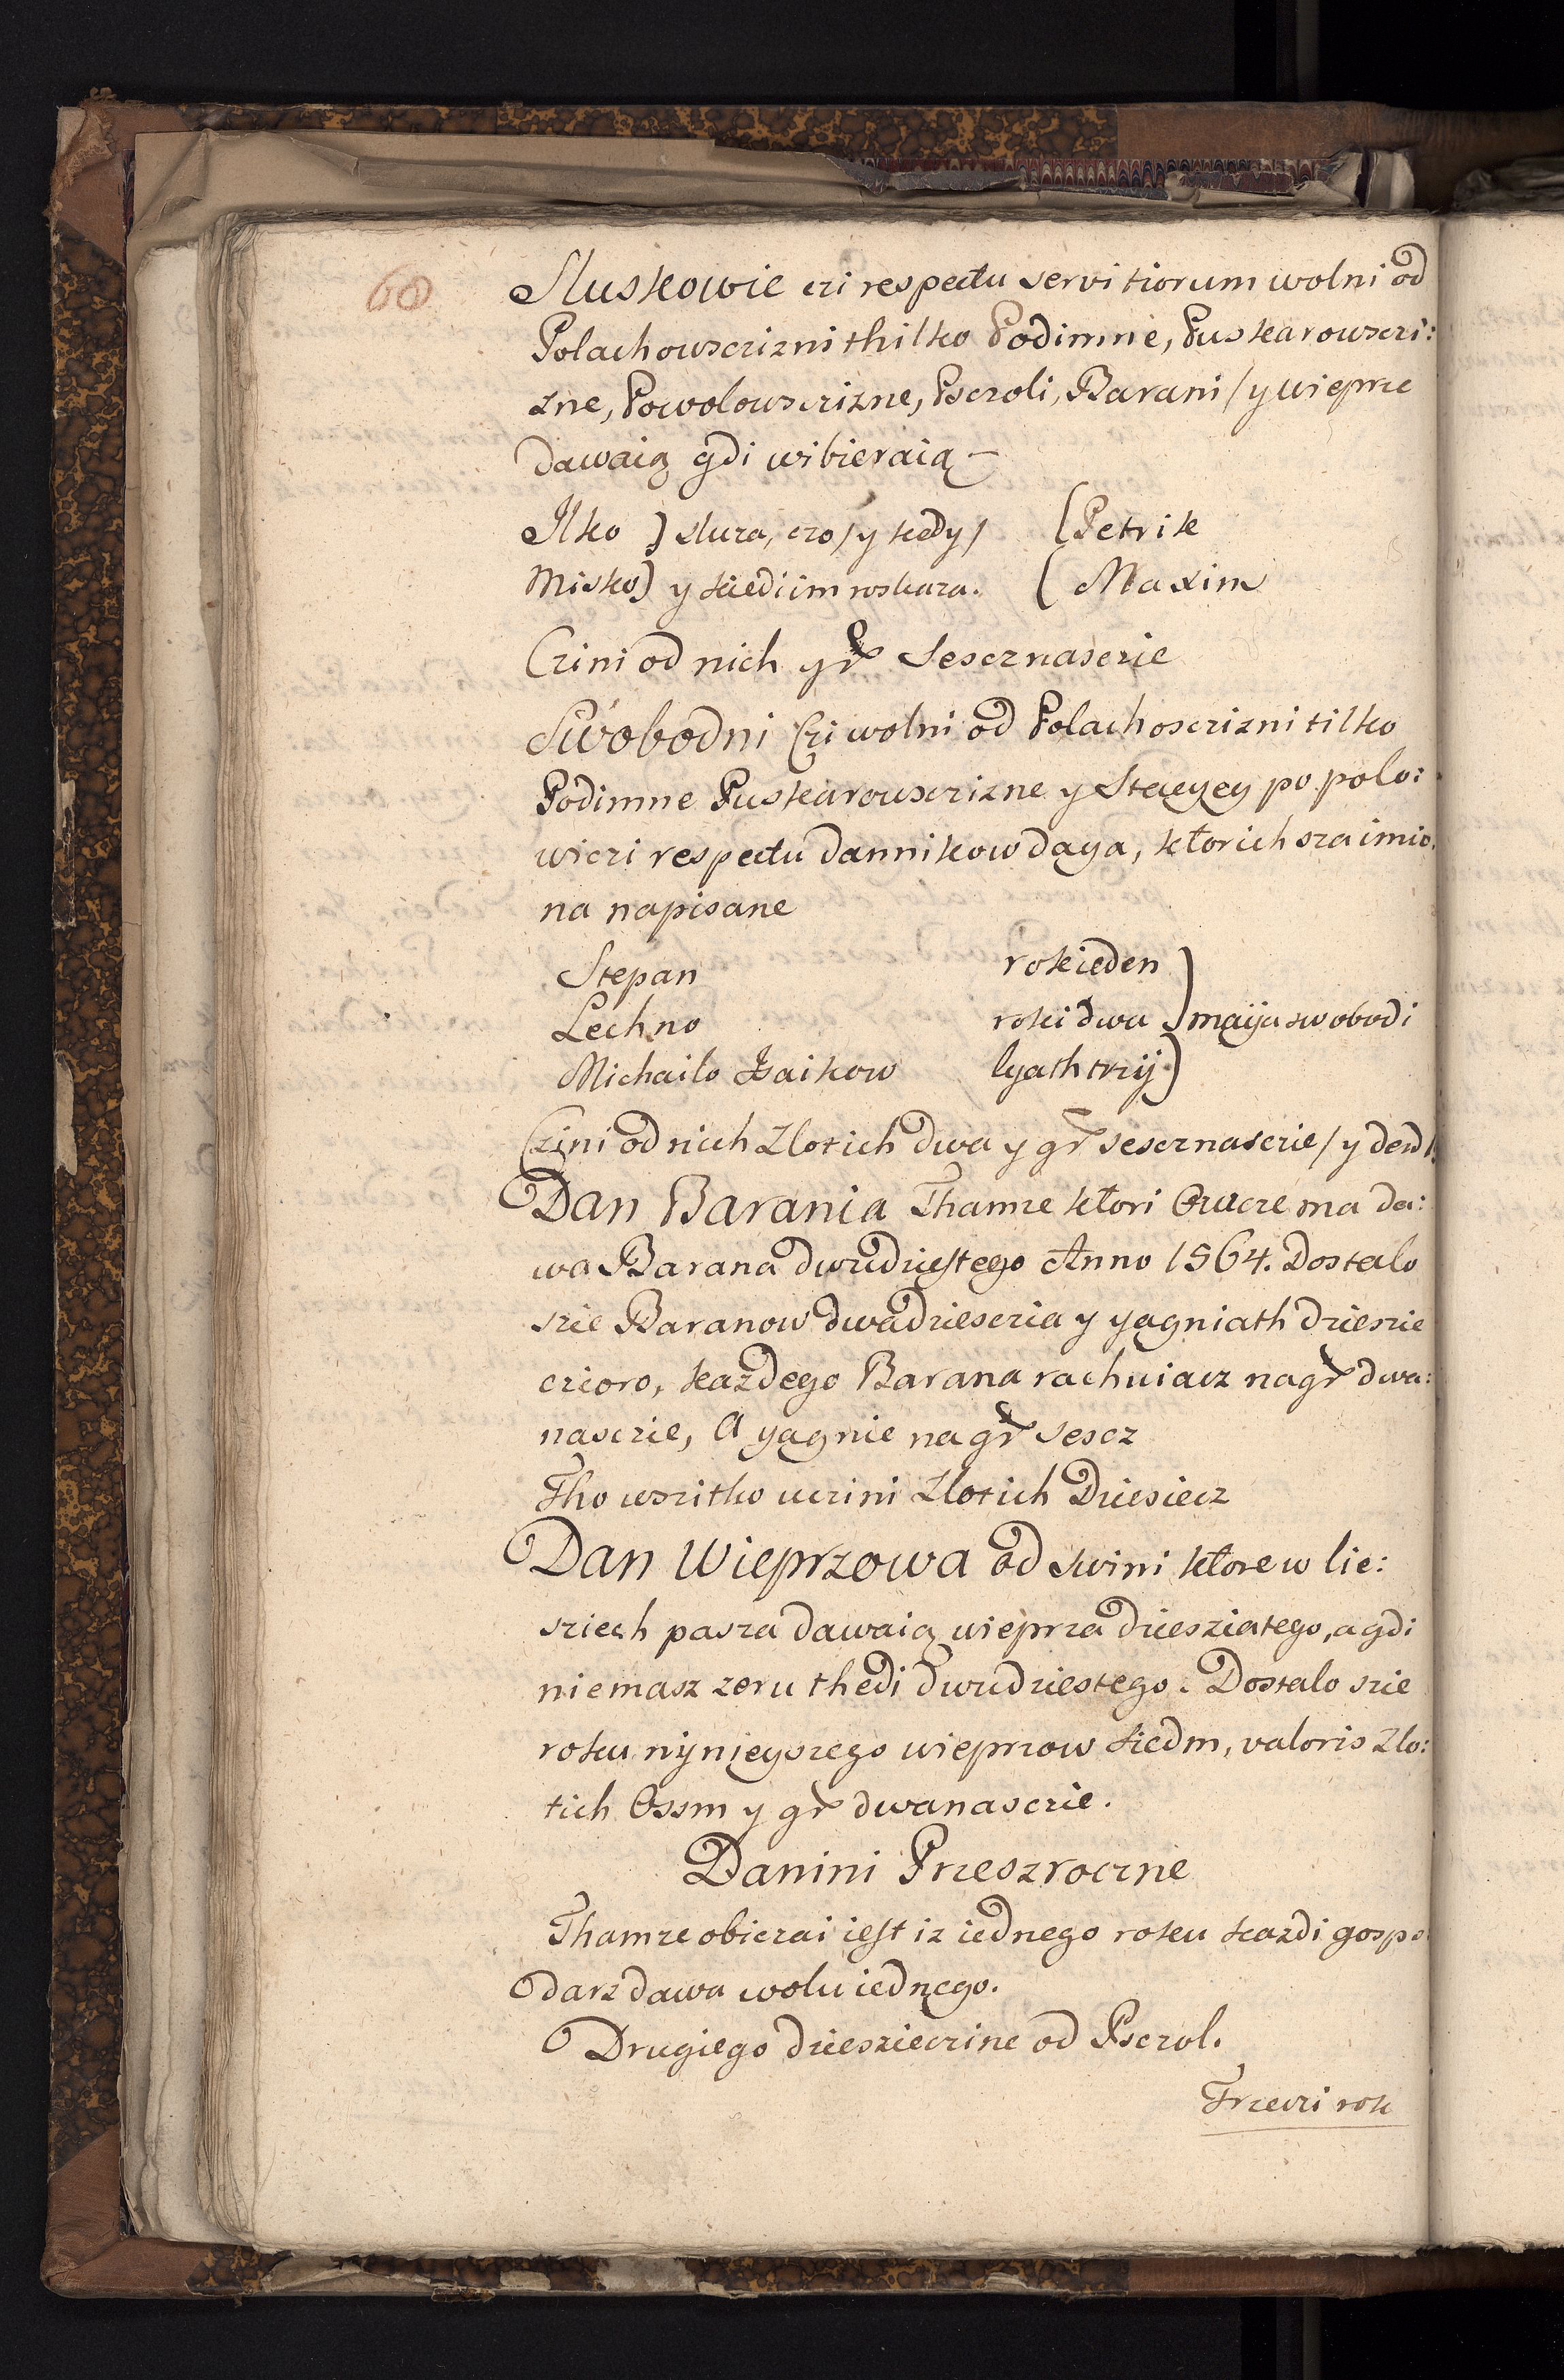 60
Sluskowie czi respectu servitiorum wolni od
Polachowsczizni thilko Podimne, Puskarowsczi:
zne, Powolowsczizne, Psczoli, Barani / y wieprze
dawaią gdi wibieraią –
Ilko } sluza, czo / y kedy / ( Petrik
Misko) y kiedi im roskaza. ( Maxim
Czini od nich gr Sescznascie
Swobodni Czi wolni od Polachosczizni tilko
Podimne Puskarowsczizne y Stacyey po polo:
wiczi respectu dannikow daya, ktorich sza imio
na napisane
Stepan rok ieden )
Lechno roki dwa ) maiju swobodi
Michailo Isaikow lyath trzij )
Czini od nich Zlotich dwa y gr sescznasczie / y den 1
Dan Barania Thamze ktori Owcze ma da:
wa Barana dwudziestego Anno 1564. Dostalo
szie Baranow dwadziesczia y yagniath dzieszie
czioro, kazdego Barana rachuiacz na gr dwa:
nasczie, A yagnie na gr sescz
Tho wszitko uczini Zlotich Dziesiecz
Dan Wieprzowa od swini ktore w lie:
sziech pasza dawaią wieprza dziesziatego, a gdi
niemasz zeru thedi dwudziestego. Dostalo szie
roku nijnieyszego wieprzow siedm, valoris Zlo:
tich Ossm y gr dwanasczie.
Danini Przeszroczne
Thamze obiczai iest iz iednego roku kazdi gospo
darz dawa wolu iednego.
Drugiego dzieszieczine od Psczol.
Trzeczi rok